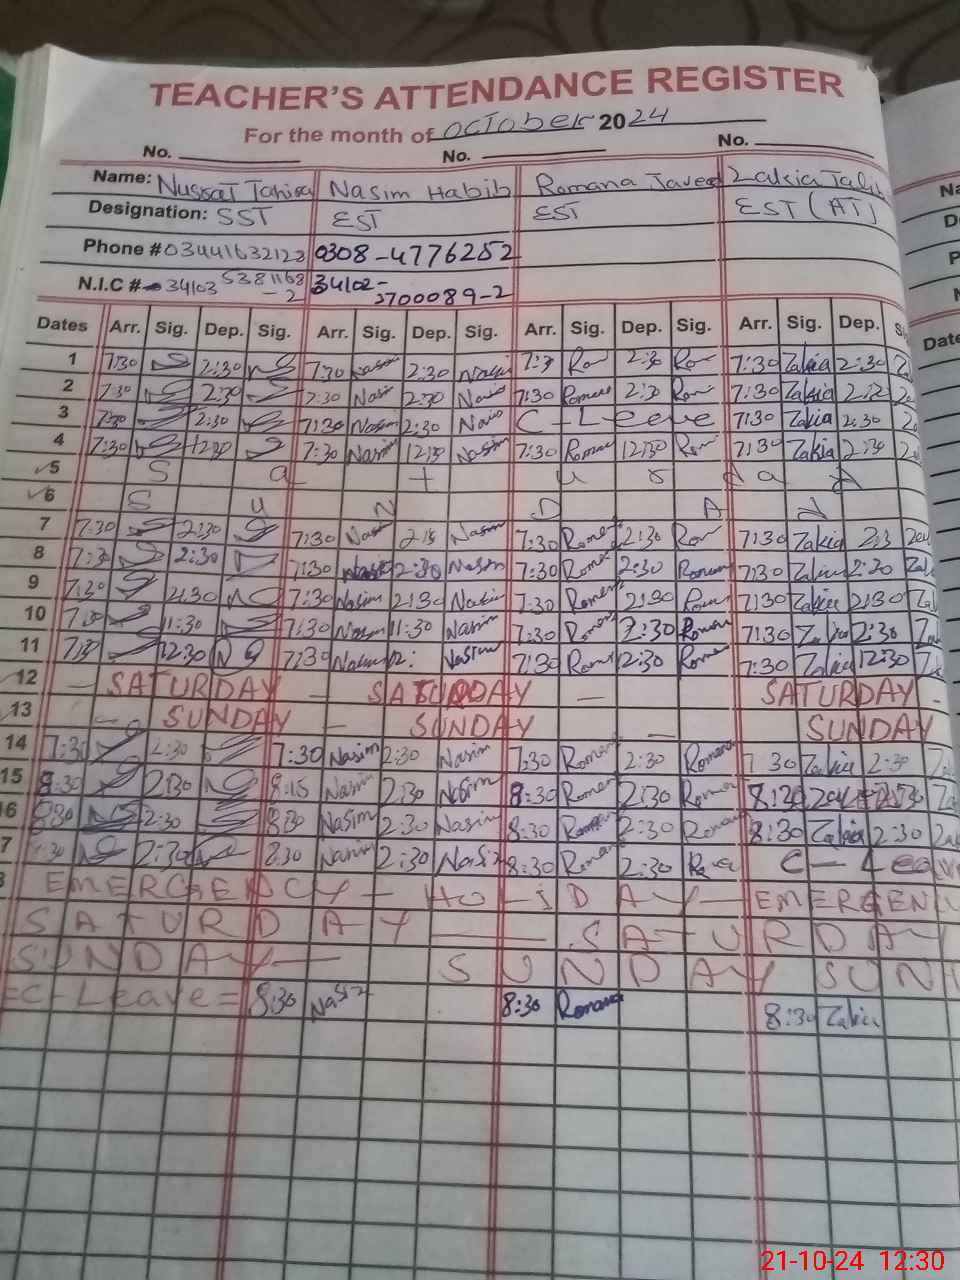 TEACHER'S ATTENDANCE REGISTER
For the month of October 2024
No. No. No.
Name: Nussat Tahira Nasim Habib Romana Javed Zakia
Designation: SST EST EST EST (AT)
Phone # 03441632123 0308-4776252
N.I.C # 34103 5381168-2 34102-3700089-2
Dates Arr. Sig. Dep. Sig. Arr. Sig. Dep. Sig. Arr. Sig. Dep. Sig. Arr. Sig. Dep.
1 7:30 2:30 7:30 Nasim 2:30 Nasim 7:3 Rom 2:30 Rom 7:30 Zakia 2:30
2 7:30 2:30 7:30 Nasim 2:30 Nasim 7:30 Romana 2:30 Rom 7:30 Zakia 2:30
3 7:30 2:30 7:30 Nasim 2:30 Nasim C-Leeve 7:30 Zakia 2:30
4 7:30 12:30 7:30 Nasim 12:30 Nasim 7:30 Romana 12:30 Rom 7:30 Zakia 2:30
5 S a t u r d a y
6 S U N D A y
7 7:30 2:30 7:30 Nasim 2:15 Nasim 7:30 Romana 2:30 Rom 7:30 Zakia 2:3
8 7:30 2:30 7:30 Nasim 2:30 Nasim 7:30 Romana 2:30 Romana 7:30 Zakia 2:30
9 7:30 2:30 7:30 Nasim 2:30 Nasim 7:30 Romana 2:30 Romana 7:30 Zakia 2:30
10 7:30 11:30 7:30 Nasim 11:30 Nasim 7:30 Romana 2:30 Romana 7:30 Zakia 2:30
11 7:30 12:30 7:30 Nasim 12: Nasim 7:30 Roma 12:30 Romana 7:30 Zakia 12:30
12 - SATURDAY - SATURDAY - SATURDAY -
13 - SUNDAY - SUNDAY - SUNDAY
14 7:30 2:30 7:30 Nasim 2:30 Nasim 7:30 Romana 2:30 Romana 7 30 Zakia 2:30
15 8:30 2:30 8:15 Nasim 2:30 Nasim 8:30 Romana 2:30 Romana 8:30 Zakia 2:30
16 8:30 2:30 8:30 Nasim 2:30 Nasim 8:30 Romana 2:30 Romana 8:30 Zakia 2:30
7 8:30 2:30 8:30 Nasim 2:30 Nasim 8:30 Romana 2:30 Roma C-Leave
EMERGENCY - HOLIDAY - EMERGENC
SATURDAY - SATURDAY
SUNDAY - SUNDAY SUN
=C-Leave= 8:30 Nasim 8:30 Romana 8:30 Zakia
21-10-24 12:30